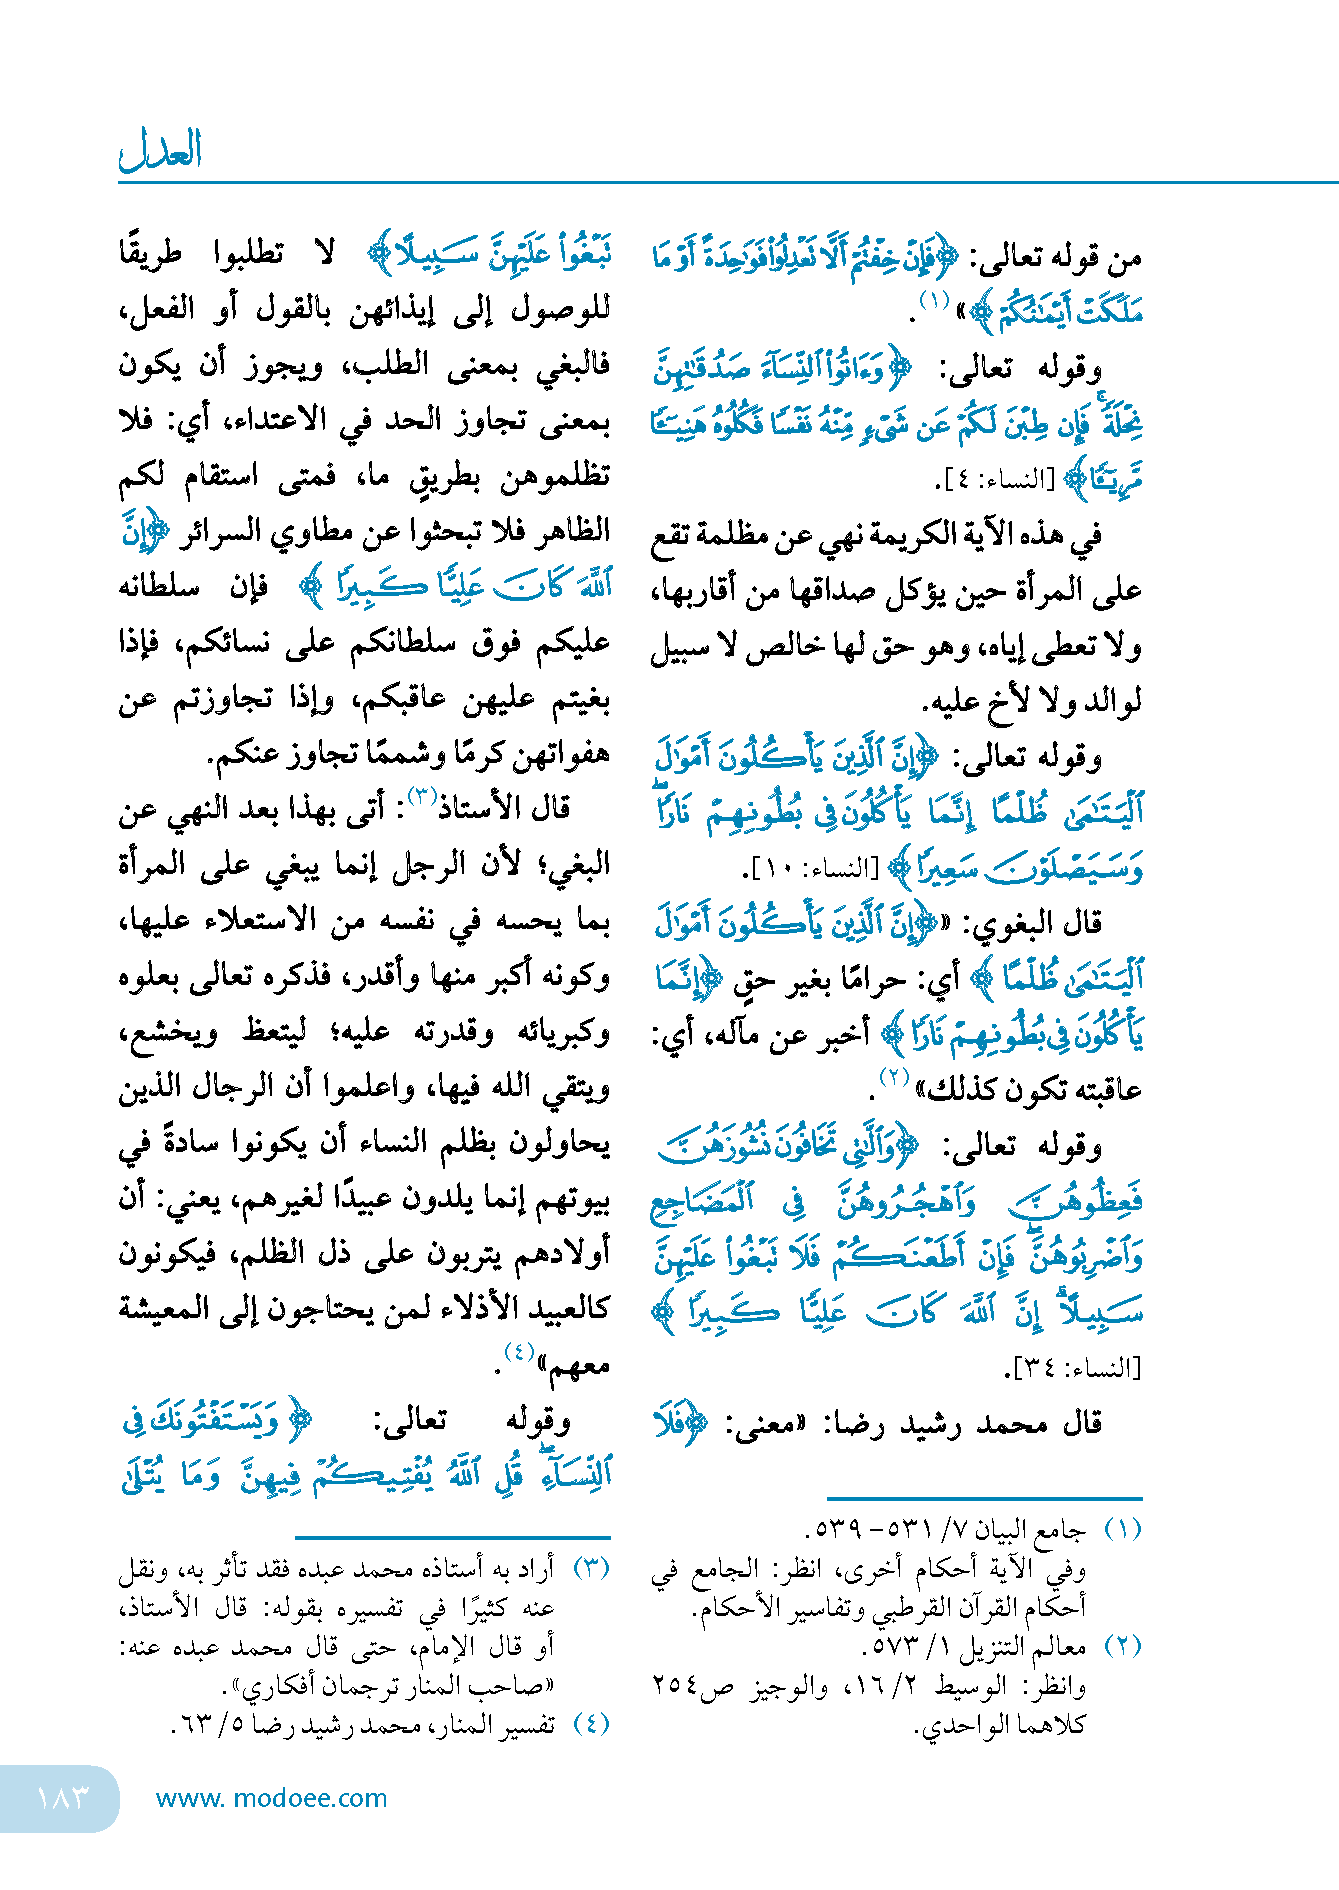 العدل
من قوله تعالى: ﴿فَإِنْ خِفْتُمْ أَلَّا تَعْدِلُوا فَوَاحِدَةً أَوْ مَا
مَلَكَتْ أَيْمَانُكُمْ﴾»(١).
وقوله تعالى: ﴿وَآتُوا النِّسَاءَ صَدُقَاتِهِنَّ
نِحْلَةً ۚ فَإِن طِبْنَ لَكُمْ عَن شَيْءٍ مِّنْهُ نَفْسًا فَكُلُوهُ هَنِيئًا
مَّرِيئًا﴾ [النساء: ٤].
في هذه الآية الكريمة نهي عن مظلمة تقع
على المرأة حين يؤكل صداقها من أقاربها،
ولا تعطى إياه، وهو حق لها خالص لا سبيل
لوالد ولا لأخ عليه.
وقوله تعالى: ﴿إِنَّ الَّذِينَ يَأْكُلُونَ أَمْوَالَ
الْيَتَامَىٰ ظُلْمًا إِنَّمَا يَأْكُلُونَ فِي بُطُونِهِمْ نَارًا ۖ
وَسَيَصْلَوْنَ سَعِيرًا﴾ [النساء: ١٠].
قال البغوي: «﴿إِنَّ الَّذِينَ يَأْكُلُونَ أَمْوَالَ
الْيَتَامَىٰ ظُلْمًا﴾ أي: حرامًا بغير حقٍ ﴿إِنَّمَا
يَأْكُلُونَ فِي بُطُونِهِمْ نَارًا﴾ أخبر عن مآله، أي:
عاقبته تكون كذلك»(٢).
وقوله تعالى: ﴿وَاللَّاتِي تَخَافُونَ نُشُوزَهُنَّ
فَعِظُوهُنَّ وَاهْجُرُوهُنَّ فِي الْمَضَاجِعِ
وَاضْرِبُوهُنَّ ۖ فَإِنْ أَطَعْنَكُمْ فَلَا تَبْغُوا عَلَيْهِنَّ
سَبِيلًا ۗ إِنَّ اللَّهَ كَانَ عَلِيًّا كَبِيرًا﴾
[النساء: ٣٤].
قال محمد رشيد رضا: «معنى: ﴿فَلَا
تَبْغُوا عَلَيْهِنَّ سَبِيلًا﴾ لا تطلبوا طريقًا
للوصول إلى إيذائهن بالقول أو الفعل،
فالبغي بمعنى الطلب، ويجوز أن يكون
بمعنى تجاوز الحد في الاعتداء، أي: فلا
تظلموهن بطريقٍ ما، فمتى استقام لكم
الظاهر فلا تبحثوا عن مطاوي السرائر ﴿إِنَّ
اللَّهَ كَانَ عَلِيًّا كَبِيرًا﴾ فإن سلطانه
عليكم فوق سلطانكم على نسائكم، فإذا
بغيتم عليهن عاقبكم، وإذا تجاوزتم عن
هفواتهن كرمًا وشممًا تجاوز عنكم.
قال الأستاذ(٣): أتى بهذا بعد النهي عن
البغي؛ لأن الرجل إنما يبغي على المرأة
بما يحسه في نفسه من الاستعلاء عليها،
وكونه أكبر منها وأقدر، فذكره تعالى بعلوه
وكبريائه وقدرته عليه؛ ليتعظ ويخشع،
ويتقي الله فيها، واعلموا أن الرجال الذين
يحاولون بظلم النساء أن يكونوا سادةً في
بيوتهم إنما يلدون عبيدًا لغيرهم، يعني: أن
أولادهم يتربون على ذل الظلم، فيكونون
كالعبيد الأذلاء لمن يحتاجون إلى المعيشة
معهم»(٤).
وقوله تعالى: ﴿وَيَسْتَفْتُونَكَ فِي
النِّسَاءِ ۖ قُلِ اللَّهُ يُفْتِيكُمْ فِيهِنَّ وَمَا يُتْلَىٰ
(١) جامع البيان ٧/ ٥٣١- ٥٣٩.
وفي الآية أحكام أخرى، انظر: الجامع في
أحكام القرآن القرطبي وتفاسير الأحكام.
(٢) معالم التنزيل ١/ ٥٧٣.
وانظر: الوسيط ٢/ ١٦، والوجيز ص٢٥٤
كلاهما الواحدي.
(٣) أراد به أستاذه محمد عبده فقد تأثر به، ونقل
عنه كثيرًا في تفسيره بقوله: قال الأستاذ،
أو قال الإمام، حتى قال محمد عبده عنه:
«صاحب المنار ترجمان أفكاري».
(٤) تفسير المنار، محمد رشيد رضا ٥/ ٦٣.
www. modoee.com
١٨٣